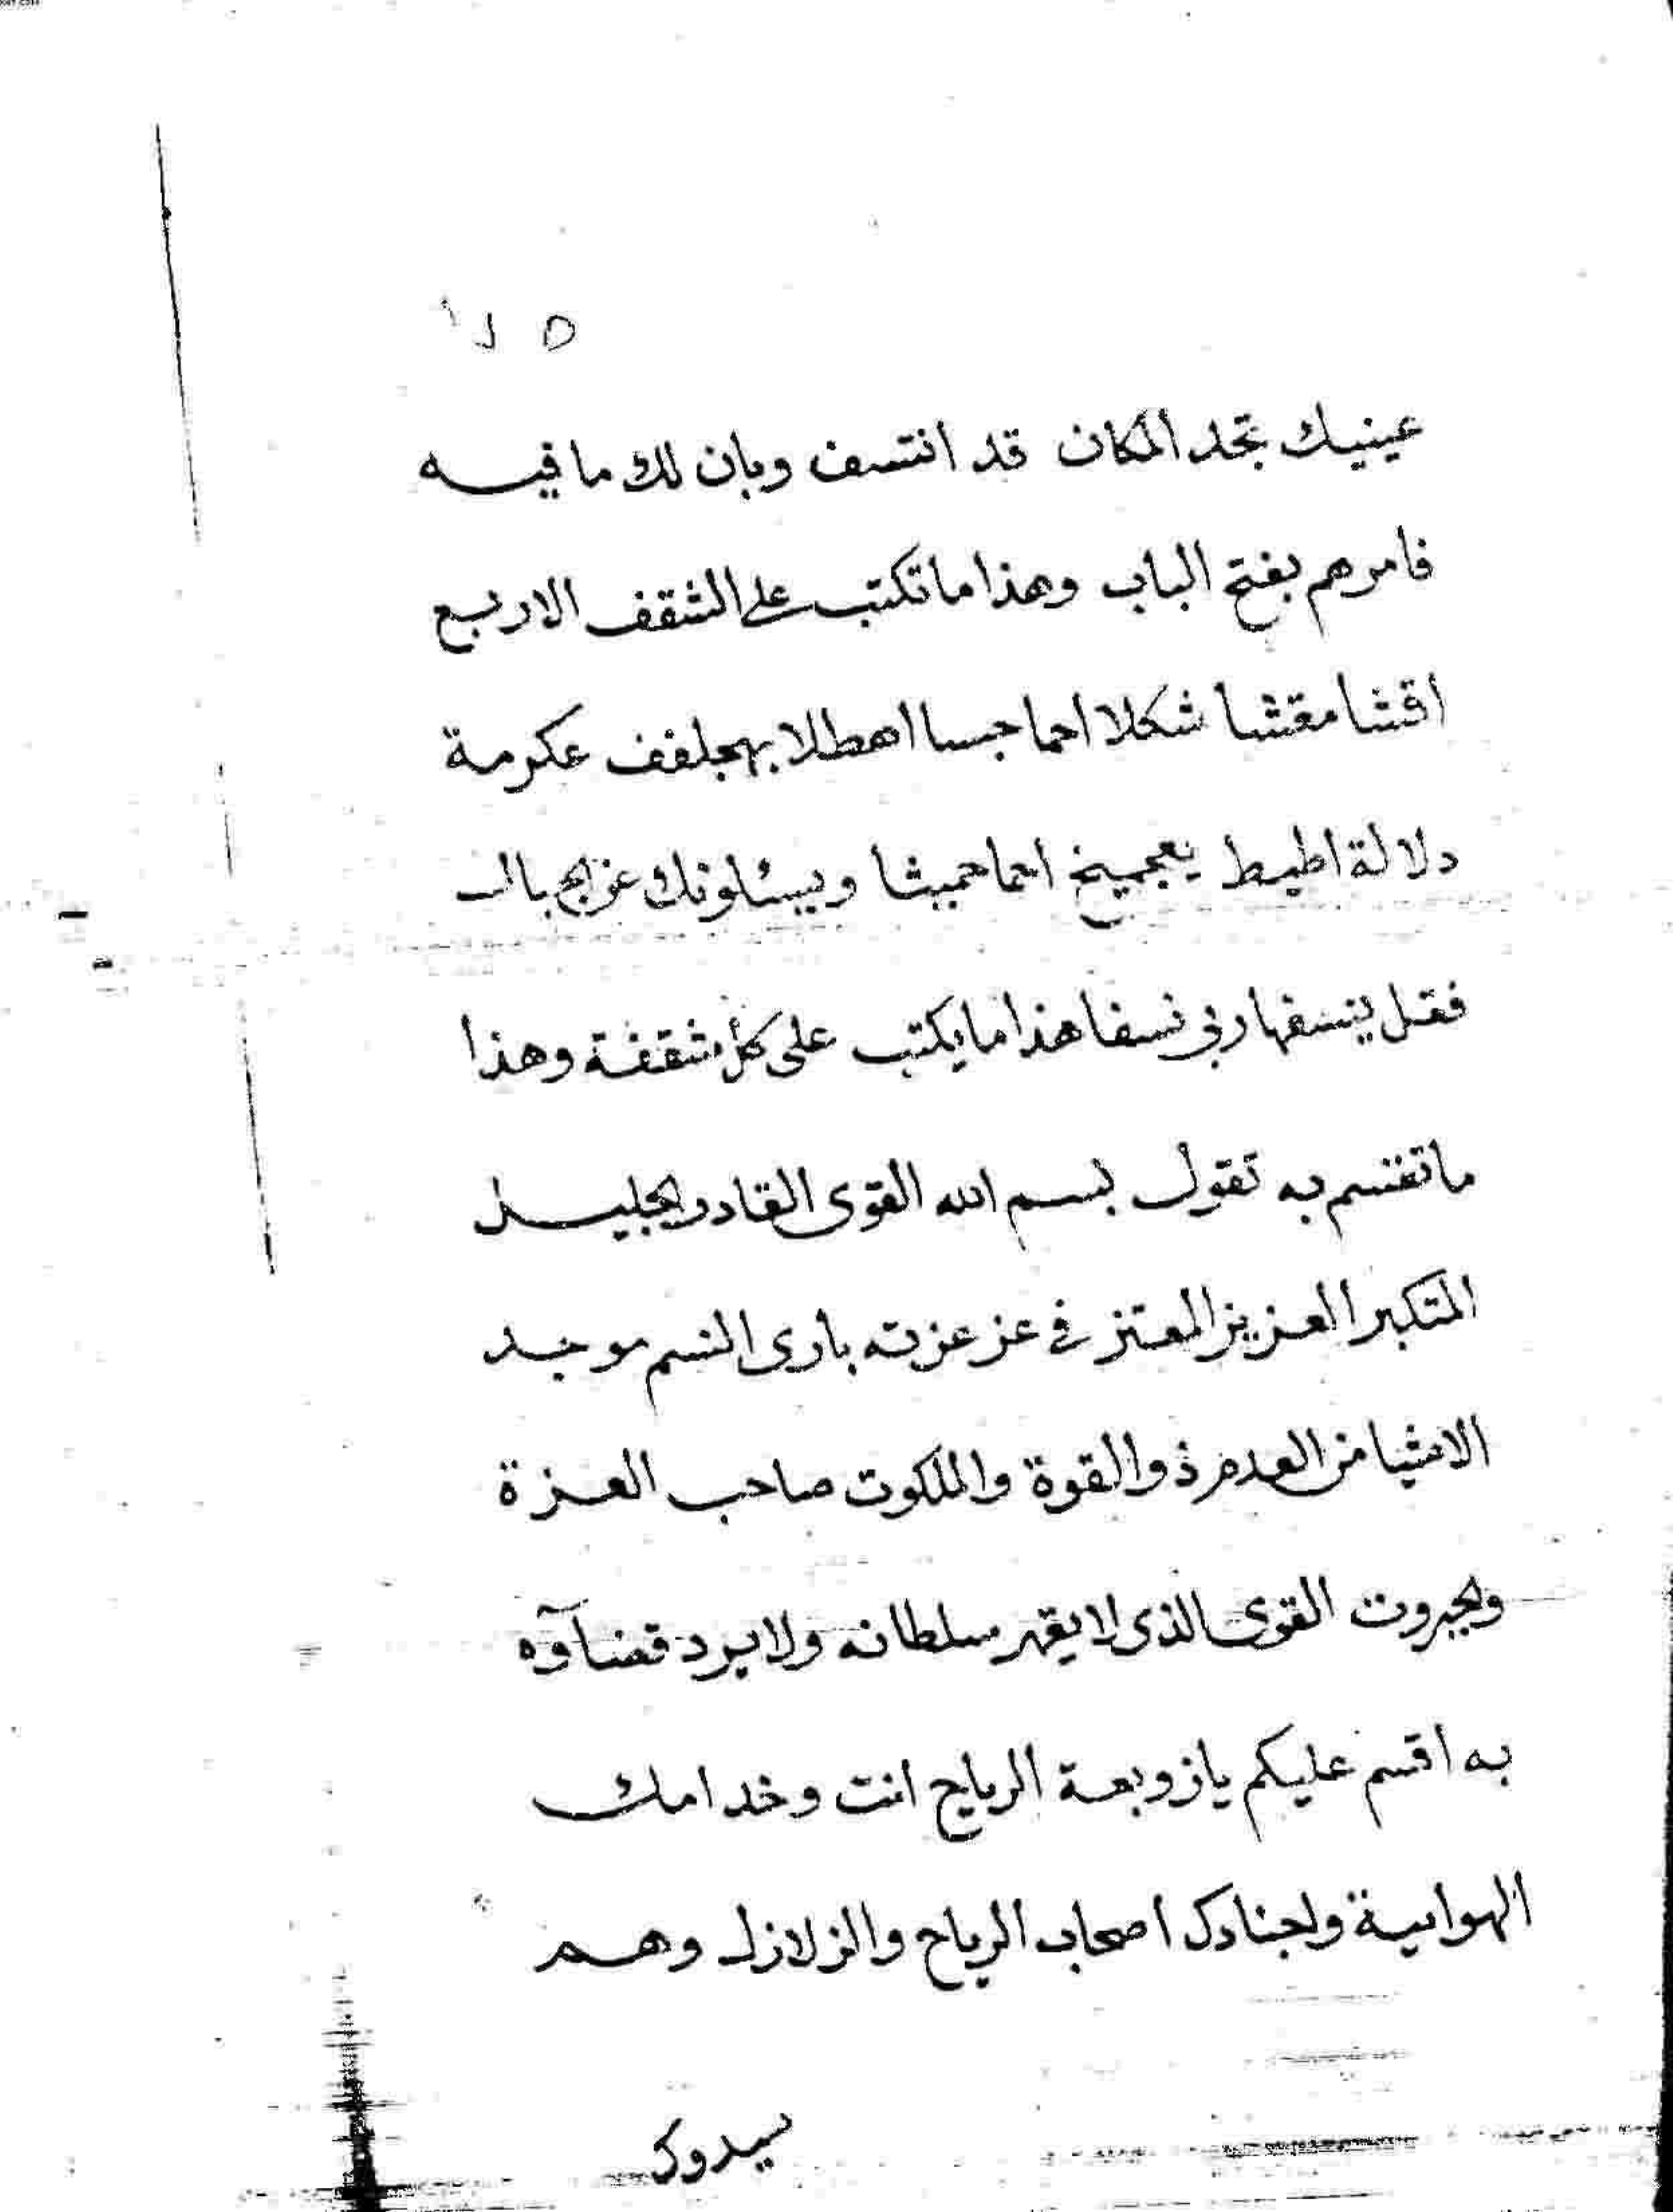 عينيك تجد المكان قد انتسف وبان لك ما فيه
فامرهم بفتح الباب وهذا ما تكتب على الشقف الاربع
اقشا مقشا شكلا احما حبسا اهطلا بهجلفف عكرمة
دلالة اطيط يعجميخ احما حميثا ويسئلونك عن الجبال
فقل ينسفها ربى نسفا هذا ما يكتب على كل شقفة وهذا
ما تقسم به تقول بسم الله القوى القادر الجليل
المتكبر العزيز المعتز فى عز عزته بارى النسم موجد
الاشيا من العدم ذو القوة والملكوت صاحب العزة
والجبروت القوى الذى لا يقهر سلطانه ولا يرد قضآوه
به اقسم عليكم يا زوبعة الرياح انت وخدامك
الهوايية واجنادك اصحاب الرياح والزلازل وهم
سيدوك